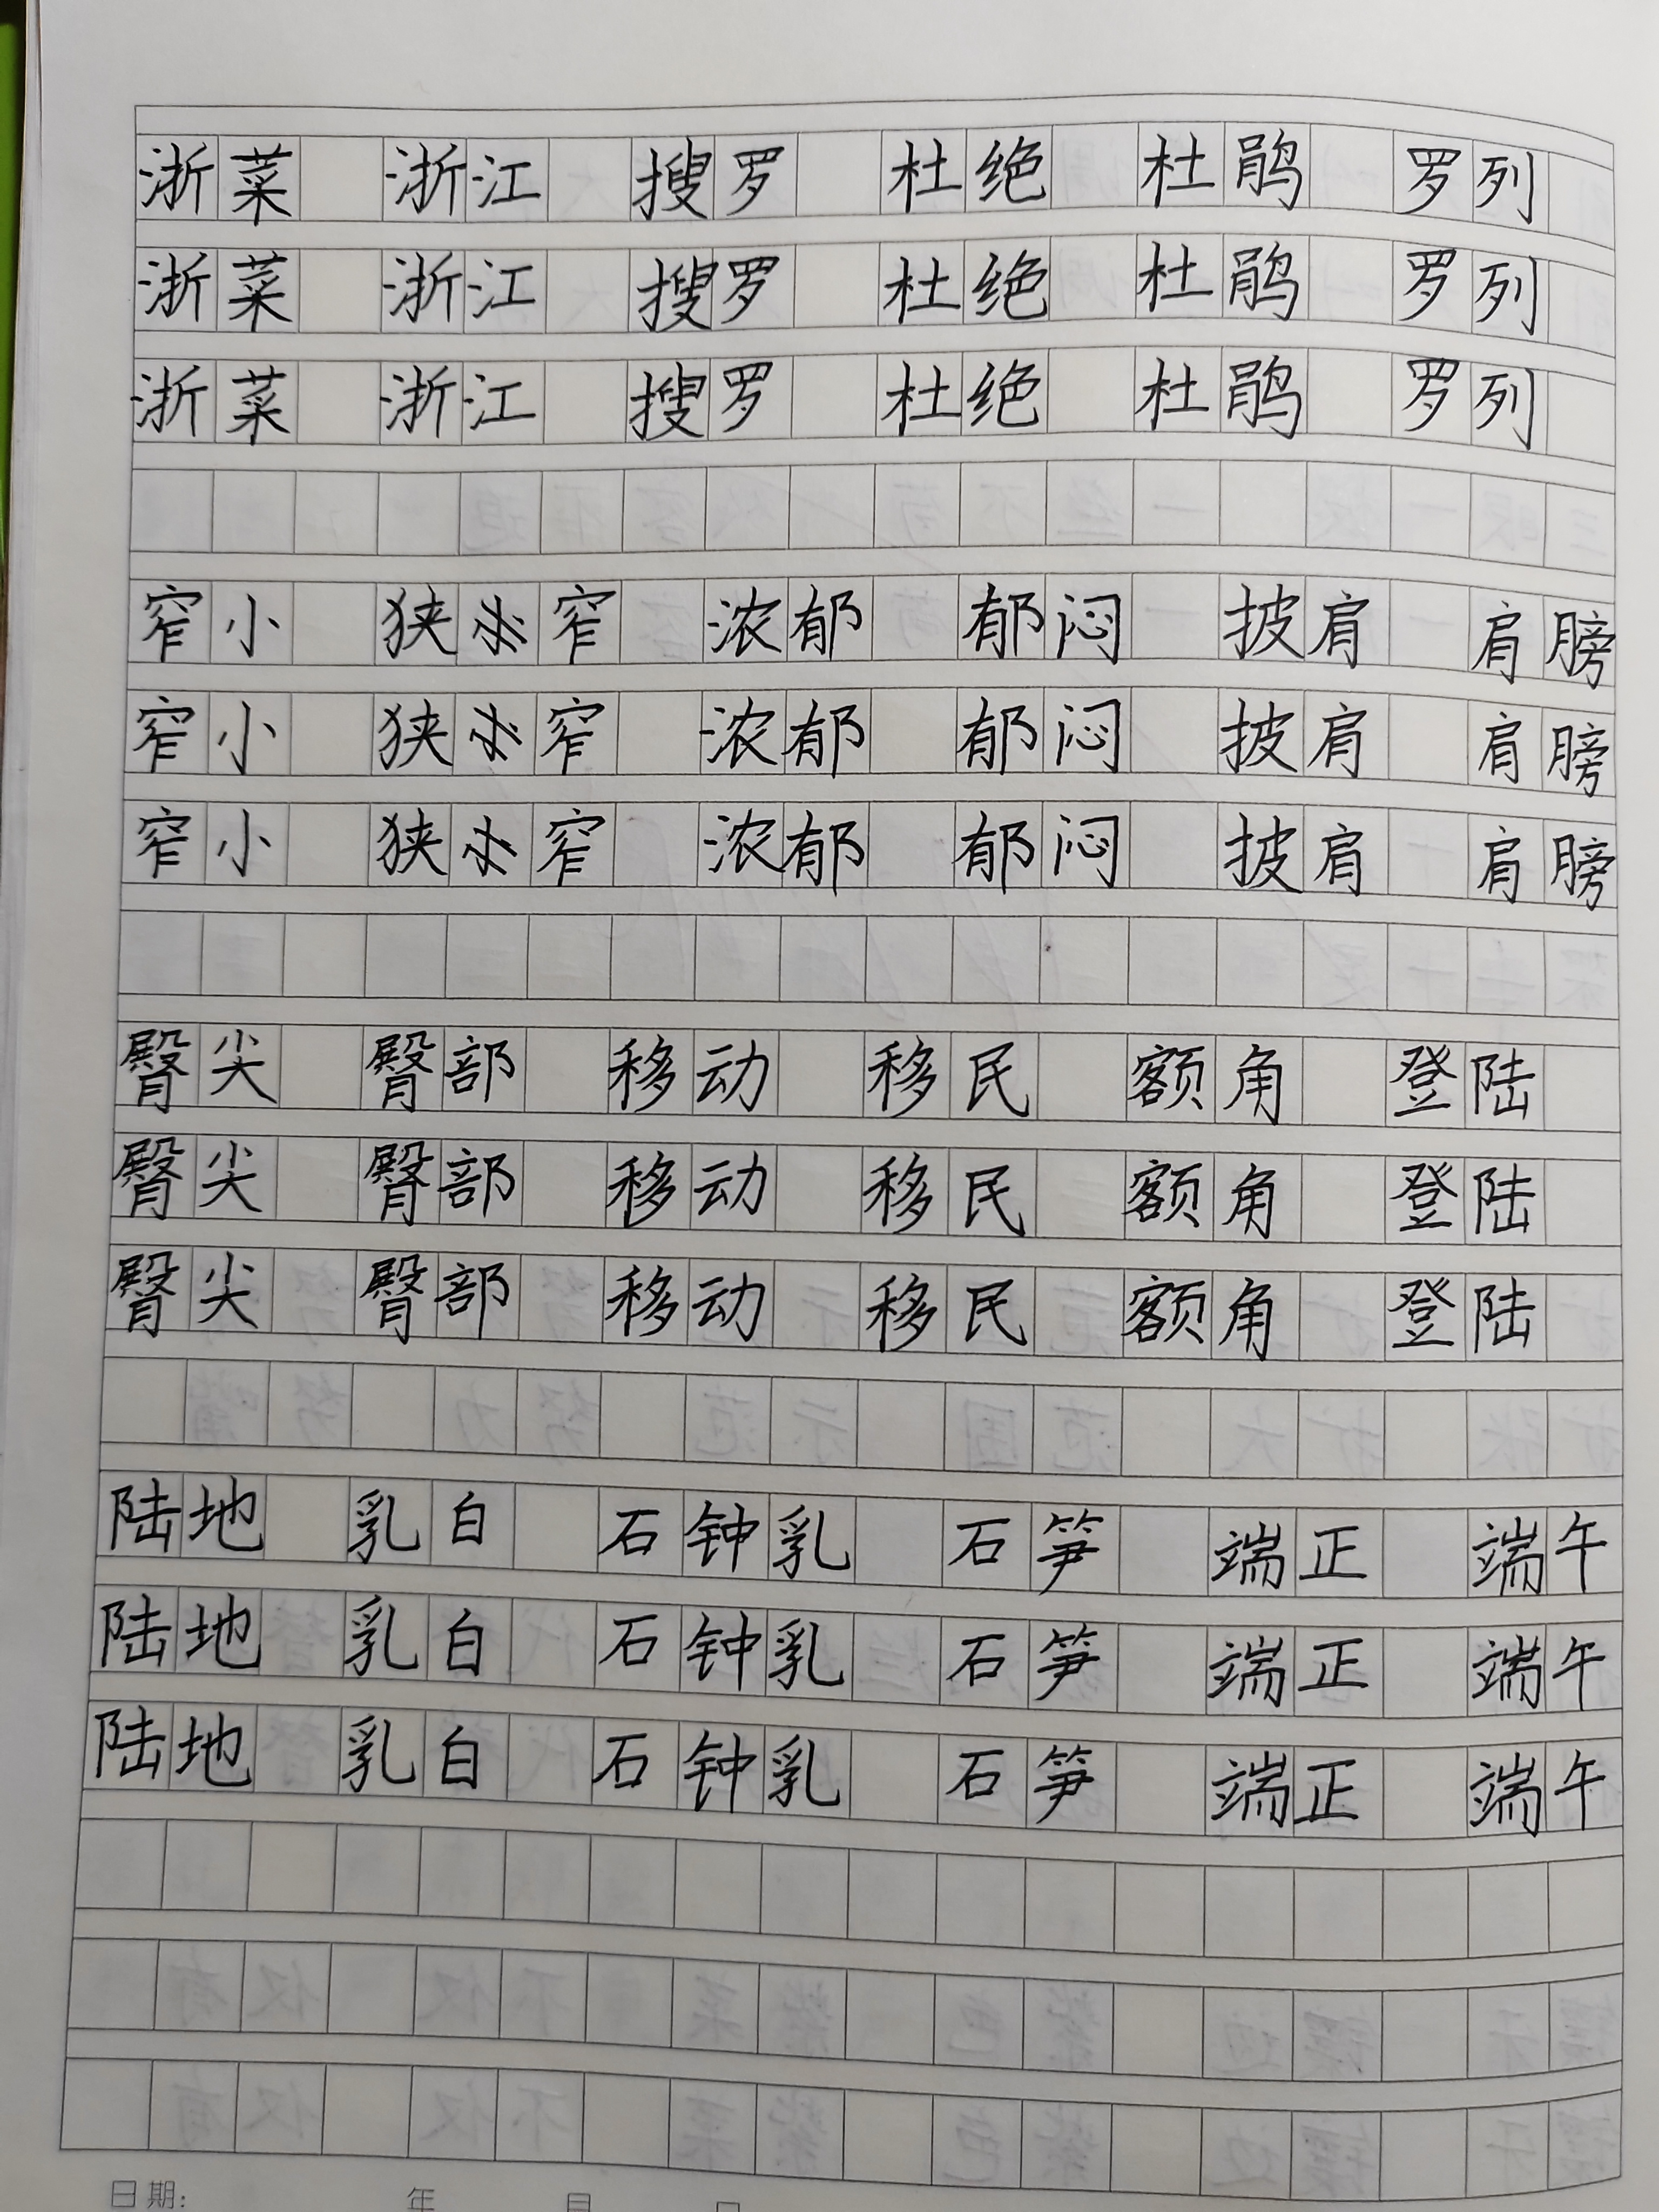 浙菜 浙江 搜罗 杜绝 杜鹃 罗列
浙菜 浙江 搜罗 杜绝 杜鹃 罗列
浙菜 浙江 搜罗 杜绝 杜鹃 罗列
窄小 狭窄 浓郁 郁闷 披肩 肩膀
窄小 狭窄 浓郁 郁闷 披肩 肩膀
窄小 狭窄 浓郁 郁闷 披肩 肩膀
臀尖 臀部 移动 移民 额角 登陆
臀尖 臀部 移动 移民 额角 登陆
臀尖 臀部 移动 移民 额角 登陆
陆地 乳白 石钟乳 石笋 端正 端午
陆地 乳白 石钟乳 石笋 端正 端午
陆地 乳白 石钟乳 石笋 端正 端午
日期: 年 月 日